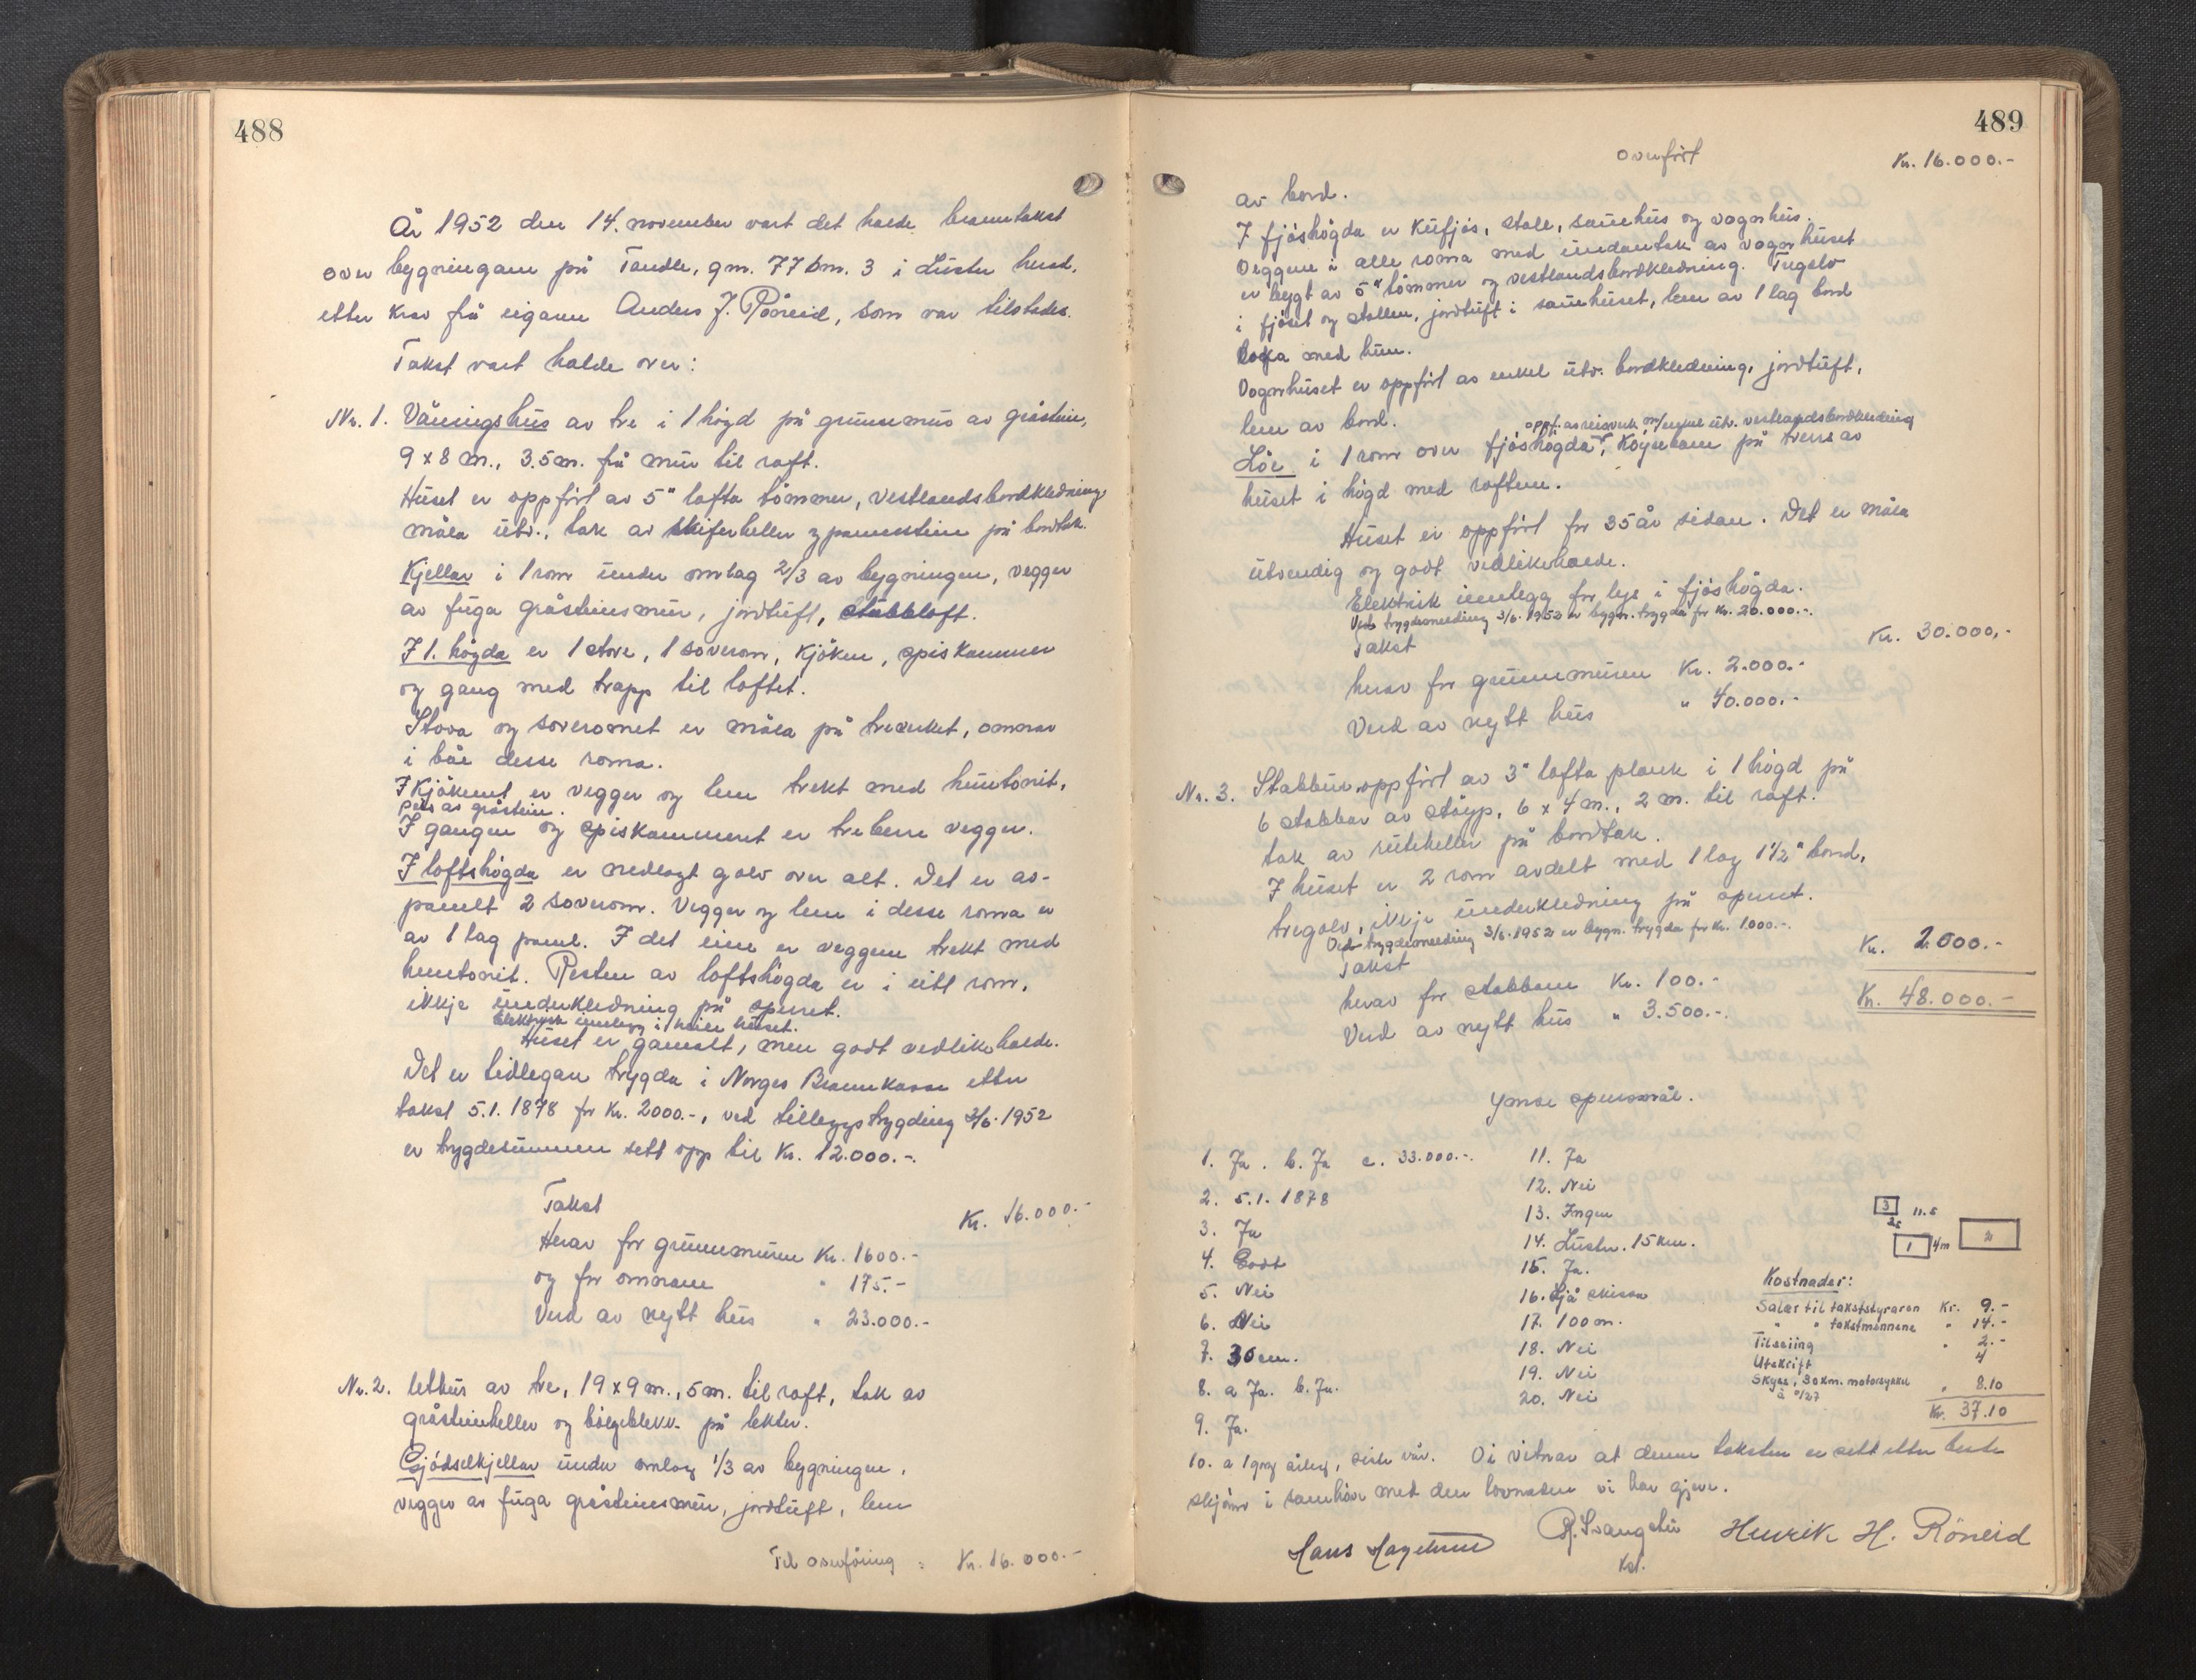 488
År 1952 den 14. november vart det halde branntakst
over bygningane på Tandle, gnr. 77 bnr. 3 i Luster herad,
etter krav frå eigaren Anders J. Röneid, som var tilstades.
Takst vart halde over:
Nr. 1. Våningshus av tre i 1 högd på grunnmur av gråstein,
9 x 8 m., 3.5 m. frå mur til raft.
Huset er oppfört av 5" lafta tömmer, vestlandsbordkledning,
måla utv., tak av skiferheller og pannestein på bordtak.
Kjellar i 1 rom under omlag 2/3 av bygningen, vegger
av fuga gråsteinsmur, jordtuft, stubbloft.
I 1. högda er 1 stove, 1 soverom, kjöken, spiskammer
og gang med trapp til loftet.
Stova og soveromet er måla på treverket, omnar
i båe desse roma.
I kjökenet er vegger og lem trekt med huntonit,
peis av gråstein.
I gangen og spiskammeret er treberre vegger.
I loftshögda er nedlagt golv over alt. Det er av-
panelt 2 soverom. Vegger og lem i desse roma er
av 1 lag panel. I det eine er veggene trekt med
huntonit. Resten av loftshögda er i eitt rom,
ikkje underkledning på sperret.
Elektrisk innlegg i heile huset.
Huset er gamalt, men godt vedlikehalde.
Det er tidlegare trygda i Norges Brannkasse etter
takst 5.1. 1878 for Kr. 2000.-, ved tilleggstrygding 3/6. 1952
er trygdesummen sett opp til Kr. 12.000.-.
Takst Kr. 16.000.-
Herav for grunnmuren Kr. 1600.-
og for omnane " 175.-
Verd av nytt hus " 23.000.-
Nr. 2. Uthus av tre, 19 x 9 m., 5 m. til raft, tak av
gråsteinheller og bölgeblekk på lekter.
Gjödselkjellar under omlag 1/3 av bygningen,
vegger av fuga gråsteinsmur, jordtuft, lem
Til overföring : Kr. 16.000.-
489
overfört Kr. 16.000.-
av bord.
I fjöshögda er kufjös, stall, sauehus og vognhus.
Veggene i alle roma med undantak av vognhuset
er bygt av 5" tömmer og vestlandsbordkledning. Tregolv
i fjöset og stallen, jordtuft i sauehuset, lem av 1 lag bord
Vognhuset er oppfört av enkel utv. bordkledning, jordtuft,
lem av bord.
oppf. av reisverk m/enkel utv. vestlandsbordkledning
Löe i 1 rom over fjöshögda, köyrebane på tvers av
huset i högd med raftene.
Huset er oppfört for 35 år sidan. Det er måla
utvendig og godt vedlikehalde.
Elektrisk innlegg for lys i fjöshögda.
Ved trygdemelding 3/6. 1952 er bygn. trygda for Kr. 20.000.-.
Takst Kr. 30.000,-
herav for grunnmuren Kr. 2.000.-
Verd av nytt hus " 40.000.-
Nr. 3. Stabbur, oppfört av 3" lafta plank i 1 högd på
6 stabbar av stöyp, 6 x 4 m., 2 m. til raft.
tak av ruteheller på bordtak.
I huset er 2 rom avdelt med 1 lag 1 1/2" bord,
tregolv, ikkje underkledning på sperret.
Ved trygdemelding 3/6. 1952 er bygn. trygda for Kr. 1.000.-.
Takst Kr. 2.000.-
herav for stabbane Kr. 100.-
Kr. 48.000.-
Verd av nytt hus " 3.500.-.
Ymse spursmål.
1. Ja. b. Ja c. 33.000.-.
2. 5.1. 1878
3. Ja
4. Godt
5. Nei
6. Nei
7. 30 cm.
8. a Ja. b. Ja.
9. Ja.
10. a 1 gong årleg, siste vår.
11. Ja
12. Nei
13. Ingen
14. Luster. 15 km.
15. Ja.
16. Sjå skissa
17. 100 m.
18. Nei
19. Nei
20. Nei
3 11.5
1 4m 2
Kostnader:
Salær til takststyraren Kr. 9.-
" " takstmennene " 14.-
Tilseiing " 2.-
Utskrift 4
Skyss, 30 km. motorsykkel
à 0/27 " 8.10
Kr. 37.10
Vi vitnar at denne taksten er sett etter beste
skjönn i samhöve med den lovnaden vi har gjeve.
Hans R. Henrik H. Röneid